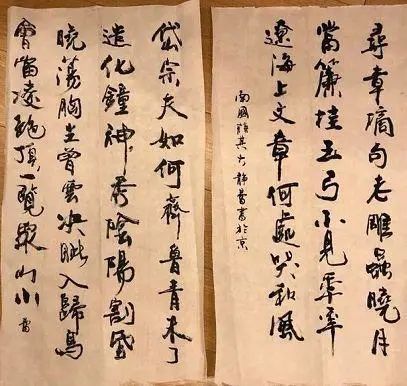 尋章摘句老雕蟲曉月
當簾挂玉弓不見年年
遼海上文章何處哭秋風
南園其六 書於京
岱宗夫如何齊魯青未了
造化鐘神秀陰陽割昏
曉蕩胸生曾雲決眦入歸鳥
會當凌絕頂一覽眾山小